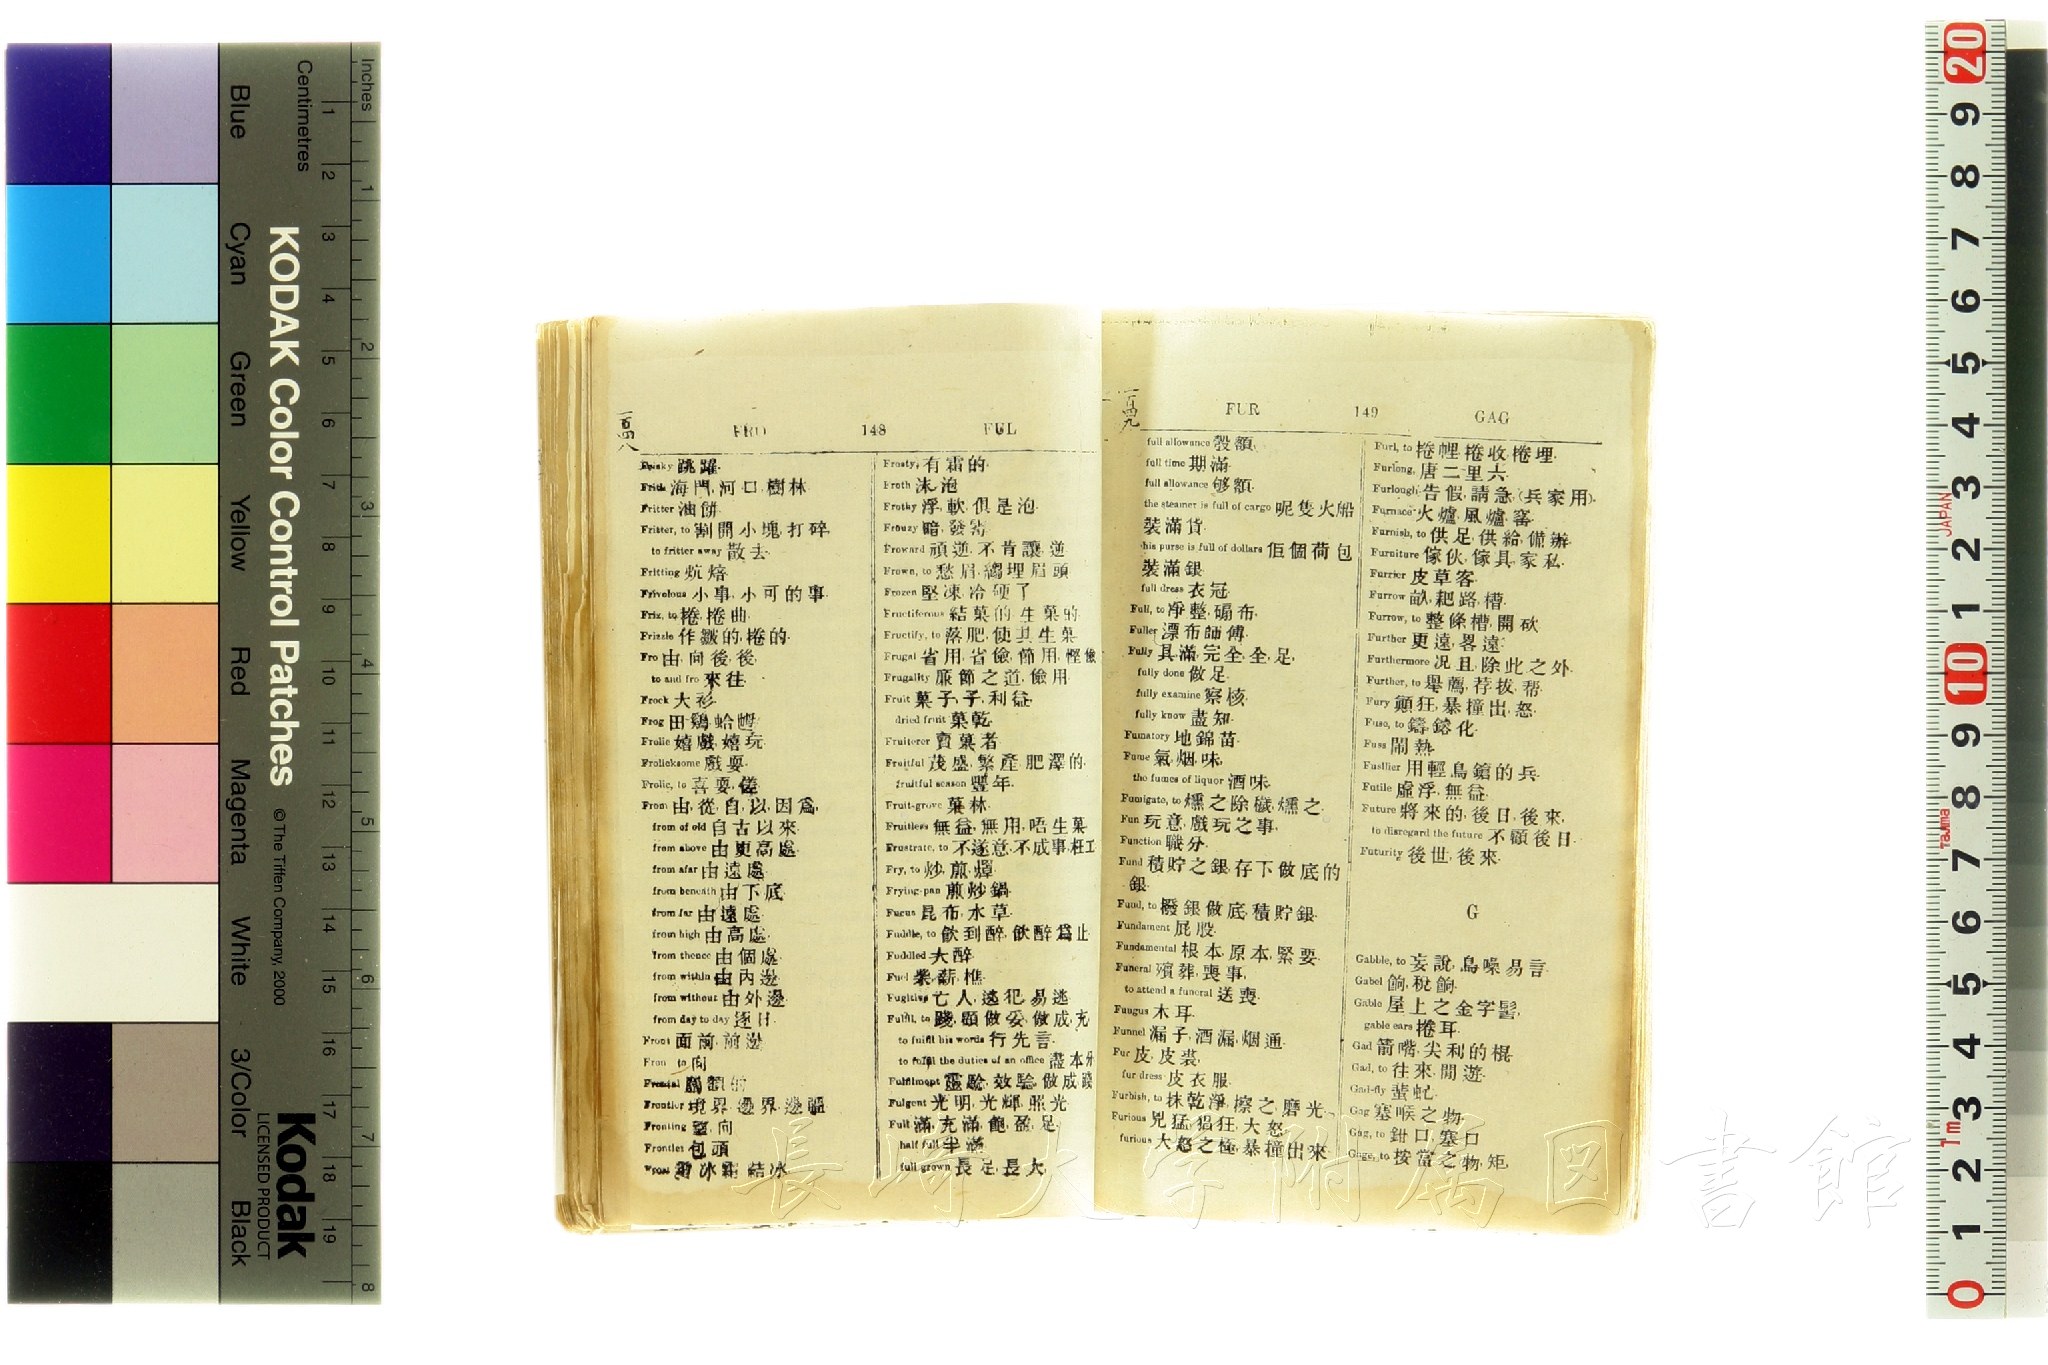 一百四八
FRO 148 FUL
Frisky 跳躍.
Frith 海門,河口,樹林
Fritter 油餅.
Fritter, to 割開小塊,打碎.
to fritter away 散去.
Fritting 炕焙.
Frivolous 小事,小可的事.
Friz, to 捲,捲曲.
Frizzle 作皺的,捲的.
Fro 由,向後,後,
to and fro 來往.
Frock 大衫.
Frog 田鷄,蛤
Frolic 嬉戲,嬉玩.
Frolicksome 戲耍.
Frolic, to 喜耍,
From 由,從,自,以,因爲,
from of old 自古以來.
from above 由更高處.
from afar 由遠處.
from beneath 由下底.
from far 由遠處.
from high 由高處.
from thence 由個處.
from within 由內邊
from without 由外邊
from day to day 逐日.
Front 面前,前邊
Fron to 向
Frontal 額的
Frontier 境界,邊界,邊疆
Fronting 望,向
Frontlet 包頭
冰霜,結冰
Frosty, 有霜的.
Froth 沫,泡
Frothy 浮,軟,俱是泡.
Frouzy 暗,發
Froward 頑逆,不肯讓,逆
Frown, to 愁眉,縐埋眉頭
Frozen 堅凍,冷硬了
Fructiferous 結菓的,生菓的
Fructify, to 落肥,使其生菓
Frugal 省用,省儉,節用,慳儉
Frugality 廉節之道,儉用
Fruit 菓子,子,利益.
dried fruit 菓乾.
Fruiterer 賣菓者
Fruitful 茂盛,繁產,肥澤的.
fruitful season 豐年.
Fruit-grove 菓林.
Fruitless 無益,無用,唔生菓
Frustrate, to 不遂意,不成事,枉工
Fry, to 炒,煎,
Frying-pan 煎炒鍋
Fucus 昆布,水草.
Fuddle, to 飲到醉,飲醉爲止
Fuddled 大醉
Fuel 柴,薪,樵
Fugitive 亡人,逃犯,易逃
Fulfil, to 踐,顧,做妥,做成,充
to fulfil his words 行先言.
to fulfil the duties of an office 盡本分
Fulfilment 靈驗,效驗,做成,踐
Fulgent 光明,光輝,照光
Full 滿,充滿,飽,盈,足.
half full 半滿
full grown 長足,長大
一百四九
FUR 149 GAG
full allowance 彀額,
full time 期滿.
full allowance 够額.
the steamer is full of cargo 呢隻火船
裝滿貨.
his purse is full of dollars 佢個荷包
裝滿銀.
full dress 衣冠.
Full, to 凈整,碾布.
Fuller 漂布師傅.
Fully 具滿,完全,全,足,
fully done 做足.
fully examine 察核.
fully know 盡知.
Fumatory 地錦苗.
Fume 氣,烟,味,
the fumes of liquor 酒味.
Fumigate, to 燻之除穢,燻之.
Fun 玩意,戲玩之事,
Function 職分.
Fund 積貯之銀,存下做底的
銀.
Fund, to 撥銀做底,積貯銀.
Fundament 屁股.
Fundamental 根本,原本,緊要
Funeral 殯葬,喪事,
to attend a funeral 送喪.
Fungus 木耳.
Funnel 漏子,酒漏,烟通.
Fur 皮,皮裘.
fur dress 皮衣服.
Furbish, to 抹乾淨,擦之,磨光.
Furious 兇猛,猖狂,大怒.
furious 大怒之極,暴撞出來
Furl, to 捲,捲收,捲埋.
Furlong, 唐二里六.
Furlough 告假,請急,(兵家用).
Furnace 火爐,風爐,窰.
Furnish, to 供足,供給,備辦.
Furniture 傢伙,傢具,家私.
Furrier 皮草客.
Furrow 畝,耙路,槽.
Furrow, to 整條槽,開砍
Further 更遠,畧遠.
Furthermore 况且,除此之外.
Further, to 舉薦,荐拔,帮.
Fury 顚狂,暴撞出,怒.
Fuse, to 鑄,鎔化.
Fuss 鬧熱.
Fusilier 用輕鳥鎗的兵.
Futile 虛浮,無益.
Future 將來的,後日,後來,
to disregard the future 不顧後日.
Futurity 後世,後來.
G
Gabble, to 妄說,鳥噪,易言.
Gabel 餉,稅餉.
Gable 屋上之金字
gable ears 捲耳.
Gad 箭嘴,尖利的棍.
Gad, to 往來,閒遊.
Gad-fly 蜚虻.
Gag 塞喉之物.
Gag, to 鉗口,塞口
Gage, to 按當之物,矩,
Inches
Centimetres
KODAK Color Control Patches
© The Tiffen Company, 2000
Kodak
LICENSED PRODUCT
Blue Cyan Green Yellow Red Magenta White 3/Color Black
1 2 3 4 5 6 7 8 9 10 11 12 13 14 15 16 17 18 19
1 2 3 4 5 6 7 8
20 9 8 7 6 5 4 3 2 1 10 9 8 7 6 5 4 3 2 1 0
JAPAN
Tajima
1m
長崎大学附属図書館